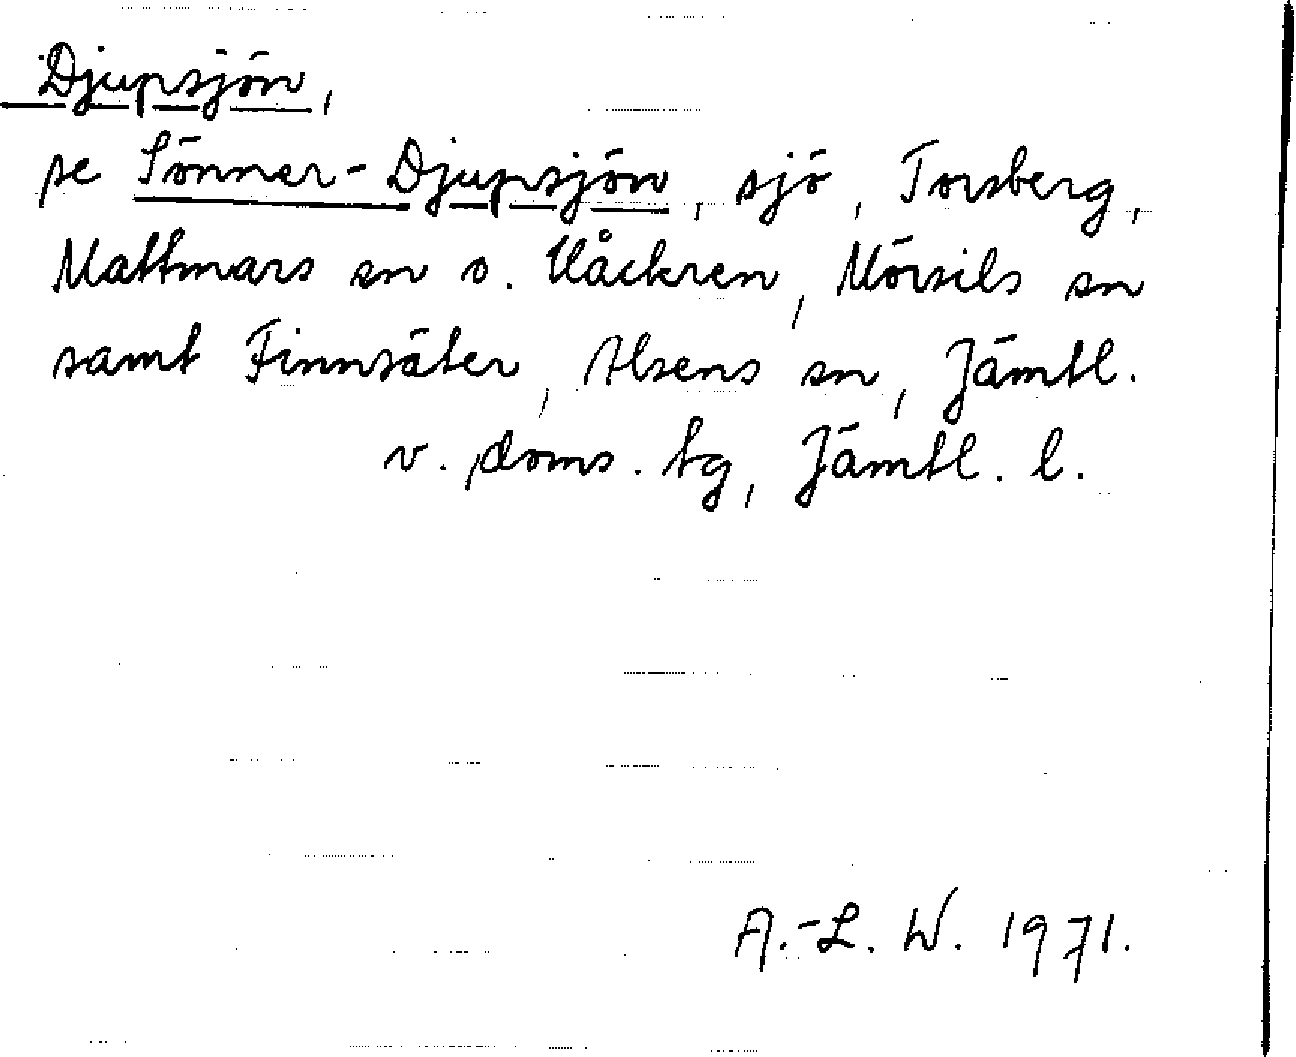 Djupsjön,
se Sönner-Djupsjön, sjö, Torsberg,
Mattmars sn o. Håckren, Mörsils sn
samt Finnsäter, Alsens sn, Jämtl.
v. doms. tg, Jämtl. l.
A.-L. W. 1971.